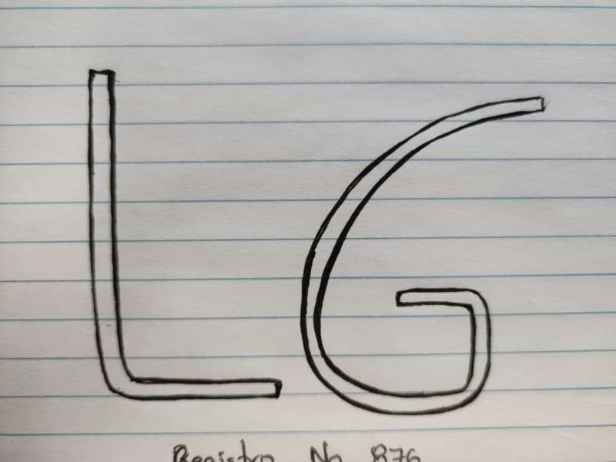 LG
Registro No 876